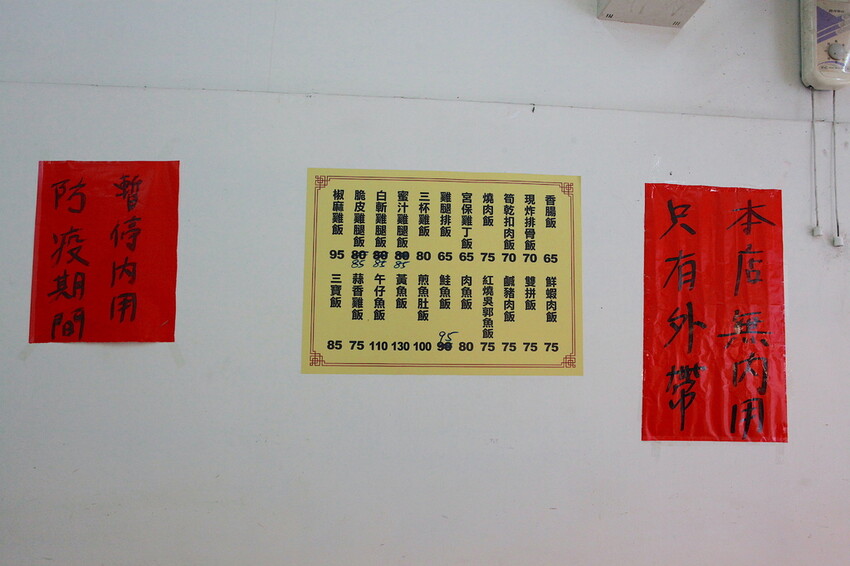 本店無內用
只有外帶
香腸飯 65
現炸排骨飯 70
筍乾扣肉飯 70
燒肉飯 75
宮保雞丁飯 65
雞腿排飯 65
三杯雞飯 80
蜜汁雞腿飯 80 85
白斬雞腿飯 80 85
脆皮雞腿飯 80 85
椒麻雞飯 95
鮮蝦肉飯 75
雙拼飯 75
鹹豬肉飯 75
紅燒吳郭魚飯 75
肉魚飯 80
鮭魚飯 90 95
煎魚肚飯 100
黃魚飯 130
午仔魚飯 110
蒜香雞飯 75
三寶飯 85
暫停內用
防疫期間